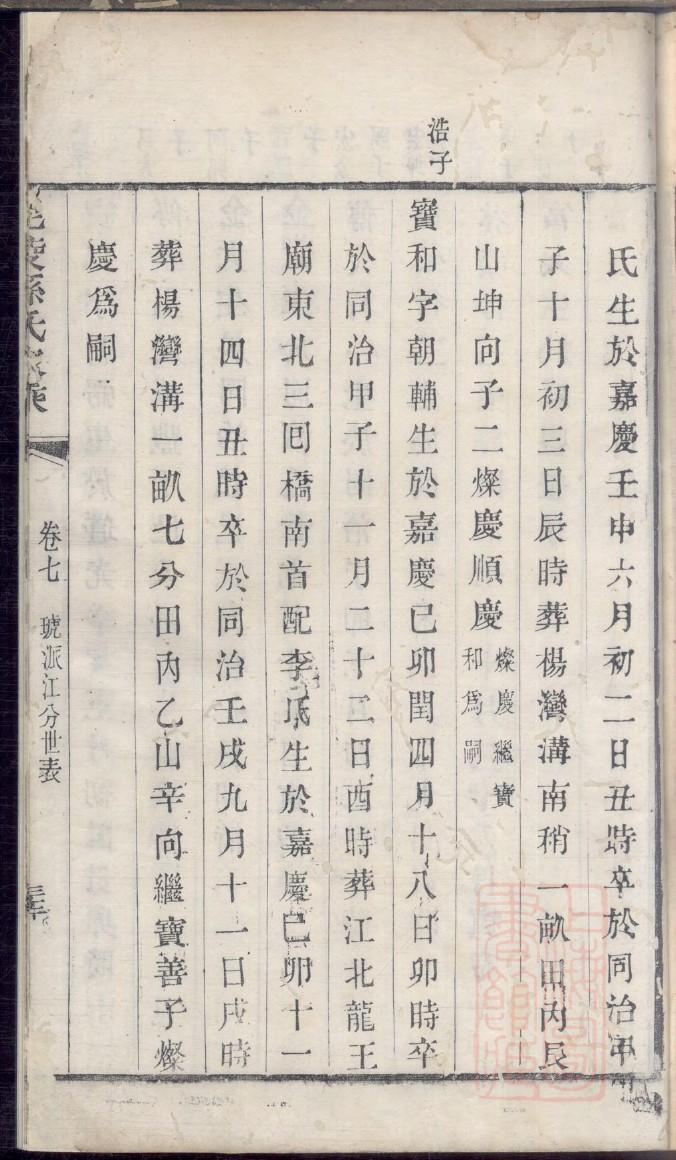 氏生於嘉慶壬申六月初二日丑時卒於同治甲
子十月初三日辰時葬楊灣溝南稍一畝田內艮
山坤向子二燦慶順慶
燦慶繼寶
和為嗣
浩子
寶和字朝輔生於嘉慶己卯閏四月十八日卯時卒
於同治甲子十一月二十二日酉時葬江北龍王
廟東北三囘橋南首配李氏生於嘉慶己卯十一
月十四日丑時卒於同治壬戌九月十一日戌時
葬楊灣溝一畝七分田內乙山辛向繼寶善子燦
慶為嗣
孫氏家乘
卷七
琥派江分世表